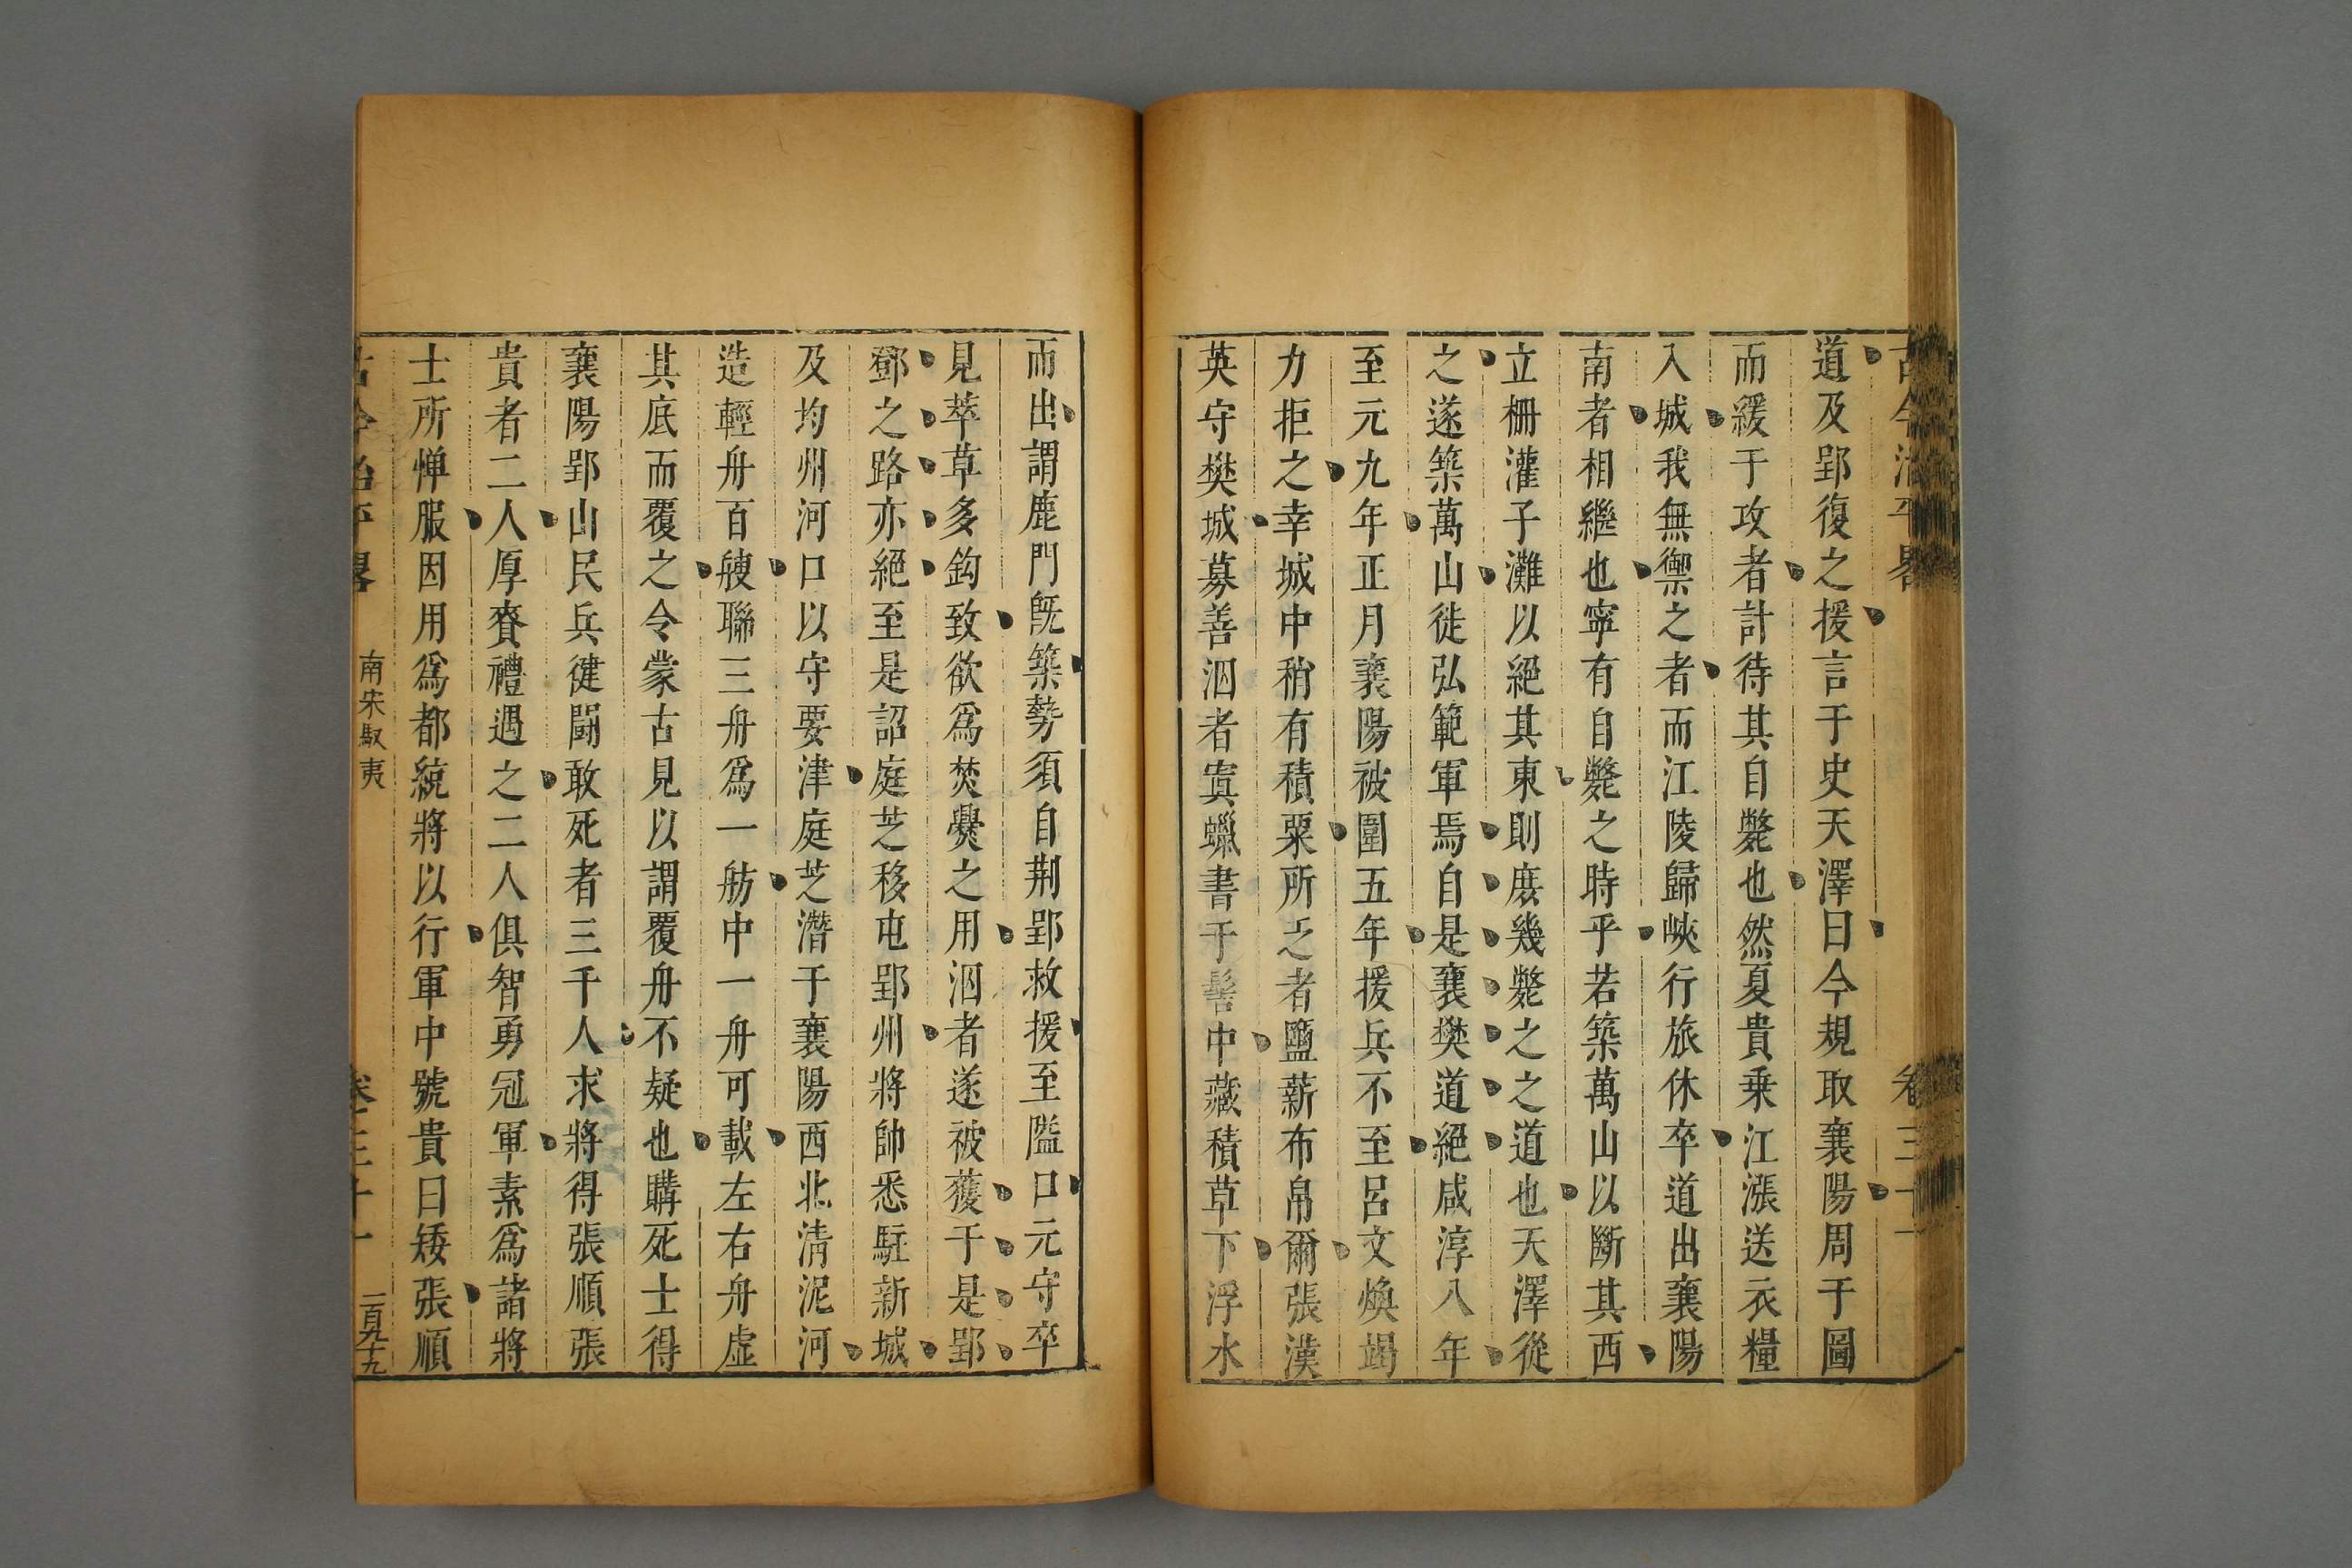 古今治平畧 卷三十一
道及郢復之援言于史天澤曰今規取襄陽周于圖
而緩于攻者計待其自斃也然夏貴乗江漲送衣糧
入城我無禦之者而江陵歸峽行旅休卒道出襄陽
南者相繼也寧有自斃之時乎若築萬山以斷其西
立栅灌子灘以絕其東則庻幾斃之之道也天澤從
之遂築萬山徙弘範軍焉自是襄樊道絕咸淳八年
至元九年正月襄陽被圍五年援兵不至呂文煥竭
力拒之幸城中稍有積粟所乏者鹽薪布帛爾張漢
英守樊城募善泅者寘蠟書于髻中藏積草下浮水
而出謂鹿門旣築勢須自荆郢救援至隘口元守卒
見萃草多鈎致欲爲焚㸑之用泅者遂被獲于是郢
鄧之路亦絕至是詔庭芝移屯郢州將帥悉駐新城
及均州河口以守要津庭芝潛于襄陽西北清泥河
造輕舟百艘聯三舟爲一舫中一舟可載左右舟虛
其底而覆之令蒙古見以謂覆舟不疑也購死士得
襄陽郢山民兵健鬭敢死者三千人求將得張順張
貴者二人厚賚禮遇之二人俱智勇冠軍素爲諸將
士所憚服因用爲都統將以行軍中號貴曰矮張順
古今治平畧 南宋馭夷 卷三十一 一百九十九